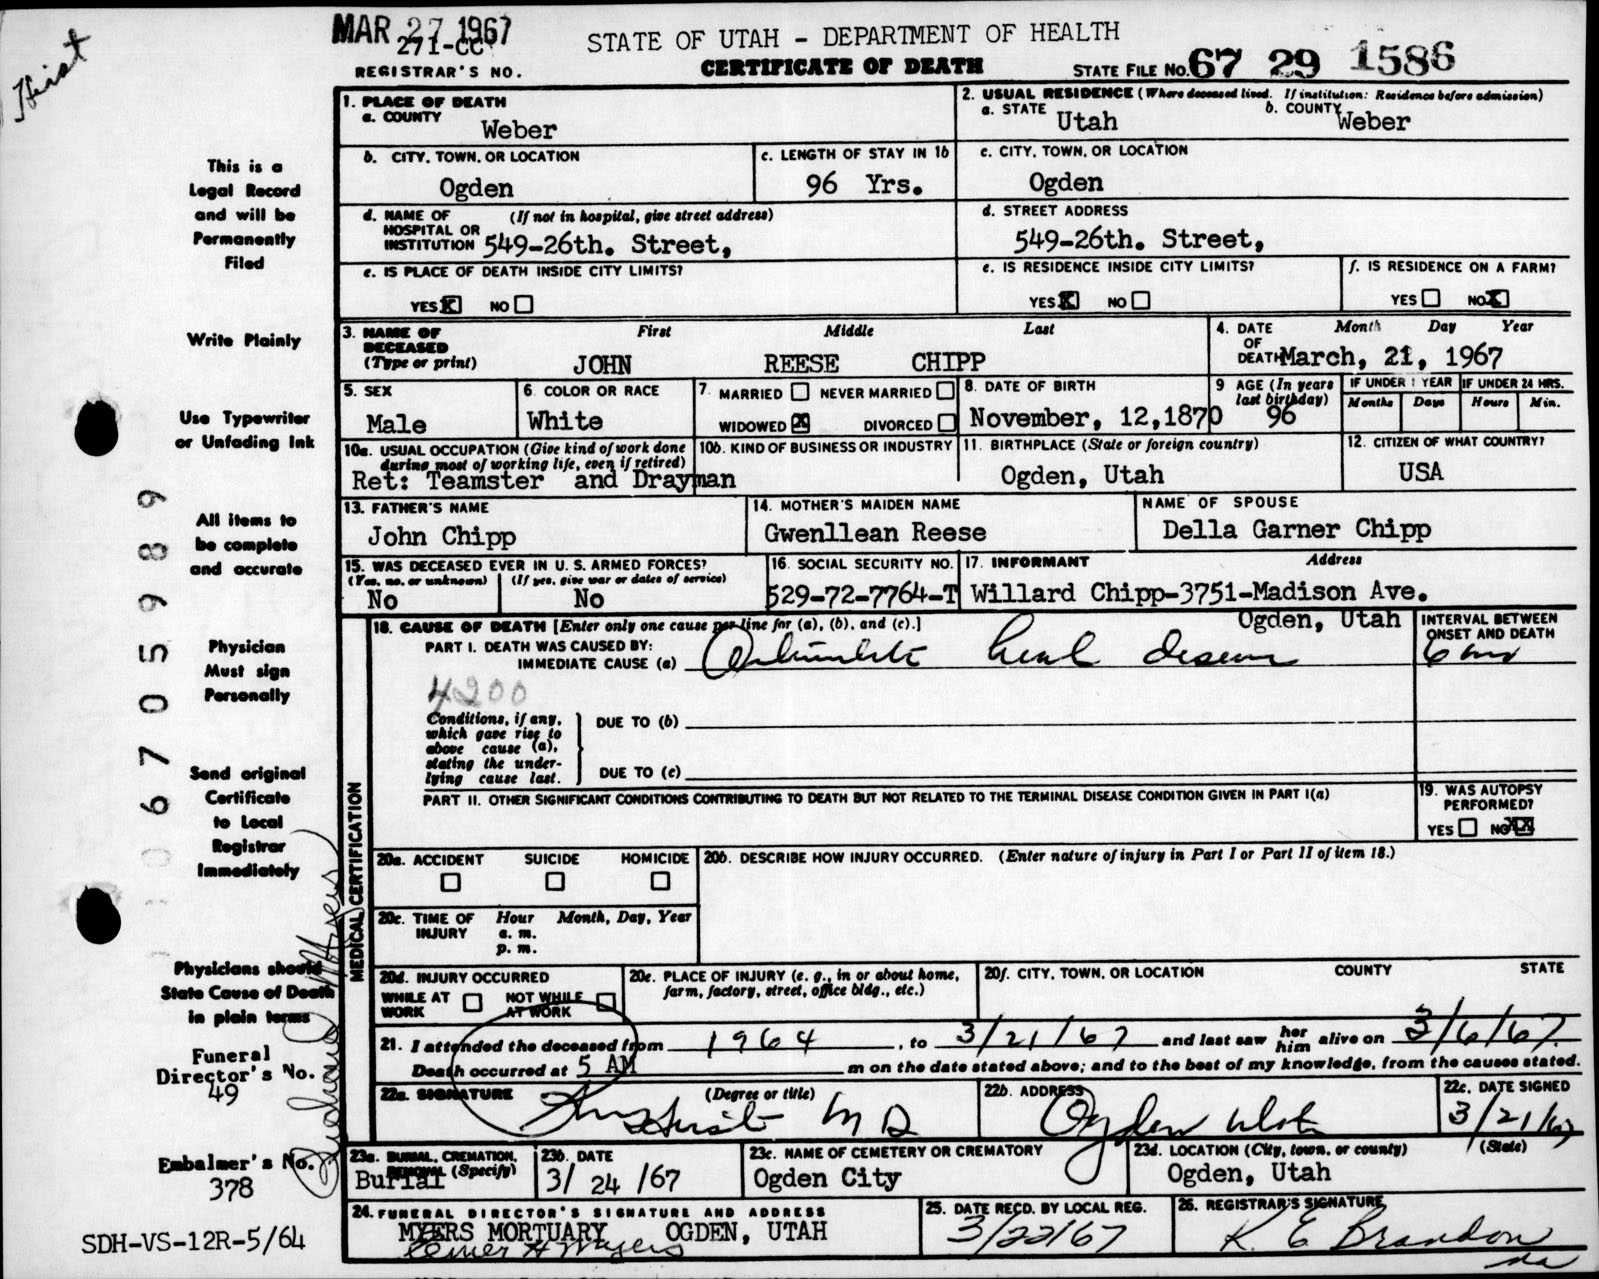 Hist
MAR 27 1967
271-CC
REGISTRAR'S NO.
STATE OF UTAH - DEPARTMENT OF HEALTH
CERTIFICATE OF DEATH
STATE FILE NO. 67 29 1586
1. PLACE OF DEATH
a. COUNTY
Weber
2. USUAL RESIDENCE (Where deceased lived. If institution: Residence before admission)
a. STATE Utah b. COUNTY Weber
b. CITY, TOWN, OR LOCATION
Ogden
c. LENGTH OF STAY IN 1b
96 Yrs.
c. CITY, TOWN, OR LOCATION
Ogden
d. NAME OF HOSPITAL OR INSTITUTION (If not in hospital, give street address)
549-26th. Street,
d. STREET ADDRESS
549-26th. Street,
e. IS PLACE OF DEATH INSIDE CITY LIMITS?
YES X NO
e. IS RESIDENCE INSIDE CITY LIMITS?
YES X NO
f. IS RESIDENCE ON A FARM?
YES NO X
3. NAME OF DECEASED (Type or print)
First Middle Last
JOHN REESE CHIPP
4. DATE OF DEATH Month Day Year
March, 21, 1967
5. SEX
Male
6. COLOR OR RACE
White
7. MARRIED NEVER MARRIED
WIDOWED X DIVORCED
8. DATE OF BIRTH
November, 12,1870
9 AGE (In years last birthday)
96
IF UNDER 1 YEAR
Months Days
IF UNDER 24 HRS.
Hours Min.
10a. USUAL OCCUPATION (Give kind of work done during most of working life, even if retired)
Ret: Teamster and Drayman
10b. KIND OF BUSINESS OR INDUSTRY
11. BIRTHPLACE (State or foreign country)
Ogden, Utah
12. CITIZEN OF WHAT COUNTRY?
USA
13. FATHER'S NAME
John Chipp
14. MOTHER'S MAIDEN NAME
Gwenllean Reese
NAME OF SPOUSE
Della Garner Chipp
15. WAS DECEASED EVER IN U. S. ARMED FORCES?
(Yes, no, or unknown) (If yes, give war or dates of service)
No No
16. SOCIAL SECURITY NO.
529-72-7764-T
17. INFORMANT Address
Willard Chipp-3751-Madison Ave.
Ogden, Utah
MEDICAL CERTIFICATION
18. CAUSE OF DEATH [Enter only one cause per line for (a), (b), and (c).]
PART I. DEATH WAS CAUSED BY:
IMMEDIATE CAUSE (a)
INTERVAL BETWEEN ONSET AND DEATH
4200
Conditions, if any, which gave rise to above cause (a), stating the underlying cause last.
DUE TO (b)
DUE TO (c)
PART II. OTHER SIGNIFICANT CONDITIONS CONTRIBUTING TO DEATH BUT NOT RELATED TO THE TERMINAL DISEASE CONDITION GIVEN IN PART I(a)
19. WAS AUTOPSY PERFORMED?
YES NO XX
20a. ACCIDENT SUICIDE HOMICIDE
20b. DESCRIBE HOW INJURY OCCURRED. (Enter nature of injury in Part I or Part II of item 18.)
20c. TIME OF INJURY Hour Month, Day, Year
a. m.
p. m.
20d. INJURY OCCURRED
WHILE AT WORK NOT WHILE AT WORK
20e. PLACE OF INJURY (e. g., in or about home, farm, factory, street, office bldg., etc.)
20f. CITY, TOWN, OR LOCATION COUNTY STATE
21. I attended the deceased from 1964, to 3/21/67 and last saw her him alive on 3/6/67.
Death occurred at 5 AM m on the date stated above; and to the best of my knowledge, from the causes stated.
22a. SIGNATURE (Degree or title)
Hirst M D
22b. ADDRESS
Ogden Utah
22c. DATE SIGNED
3/21/67
23a. BURIAL, CREMATION, REMOVAL (Specify)
Burial
23b. DATE
3/ 24 /67
23c. NAME OF CEMETERY OR CREMATORY
Ogden City
23d. LOCATION (City, town, or county) (State)
Ogden, Utah
24. FUNERAL DIRECTOR'S SIGNATURE AND ADDRESS
MYERS MORTUARY OGDEN, UTAH
25. DATE RECD. BY LOCAL REG.
3/22/67
26. REGISTRAR'S SIGNATURE
K. E Brandon
This is a
Legal Record
and will be
Permanently
Filed
Write Plainly
Use Typewriter
or Unfading Ink
All items to
be complete
and accurate
Physician
Must sign
Personally
Send original
Certificate
to Local
Registrar
Immediately
Physicians should
State Cause of Death
in plain terms
Funeral
Director's No.
49
Embalmer's No.
378
SDH-VS-12R-5/64
06705989